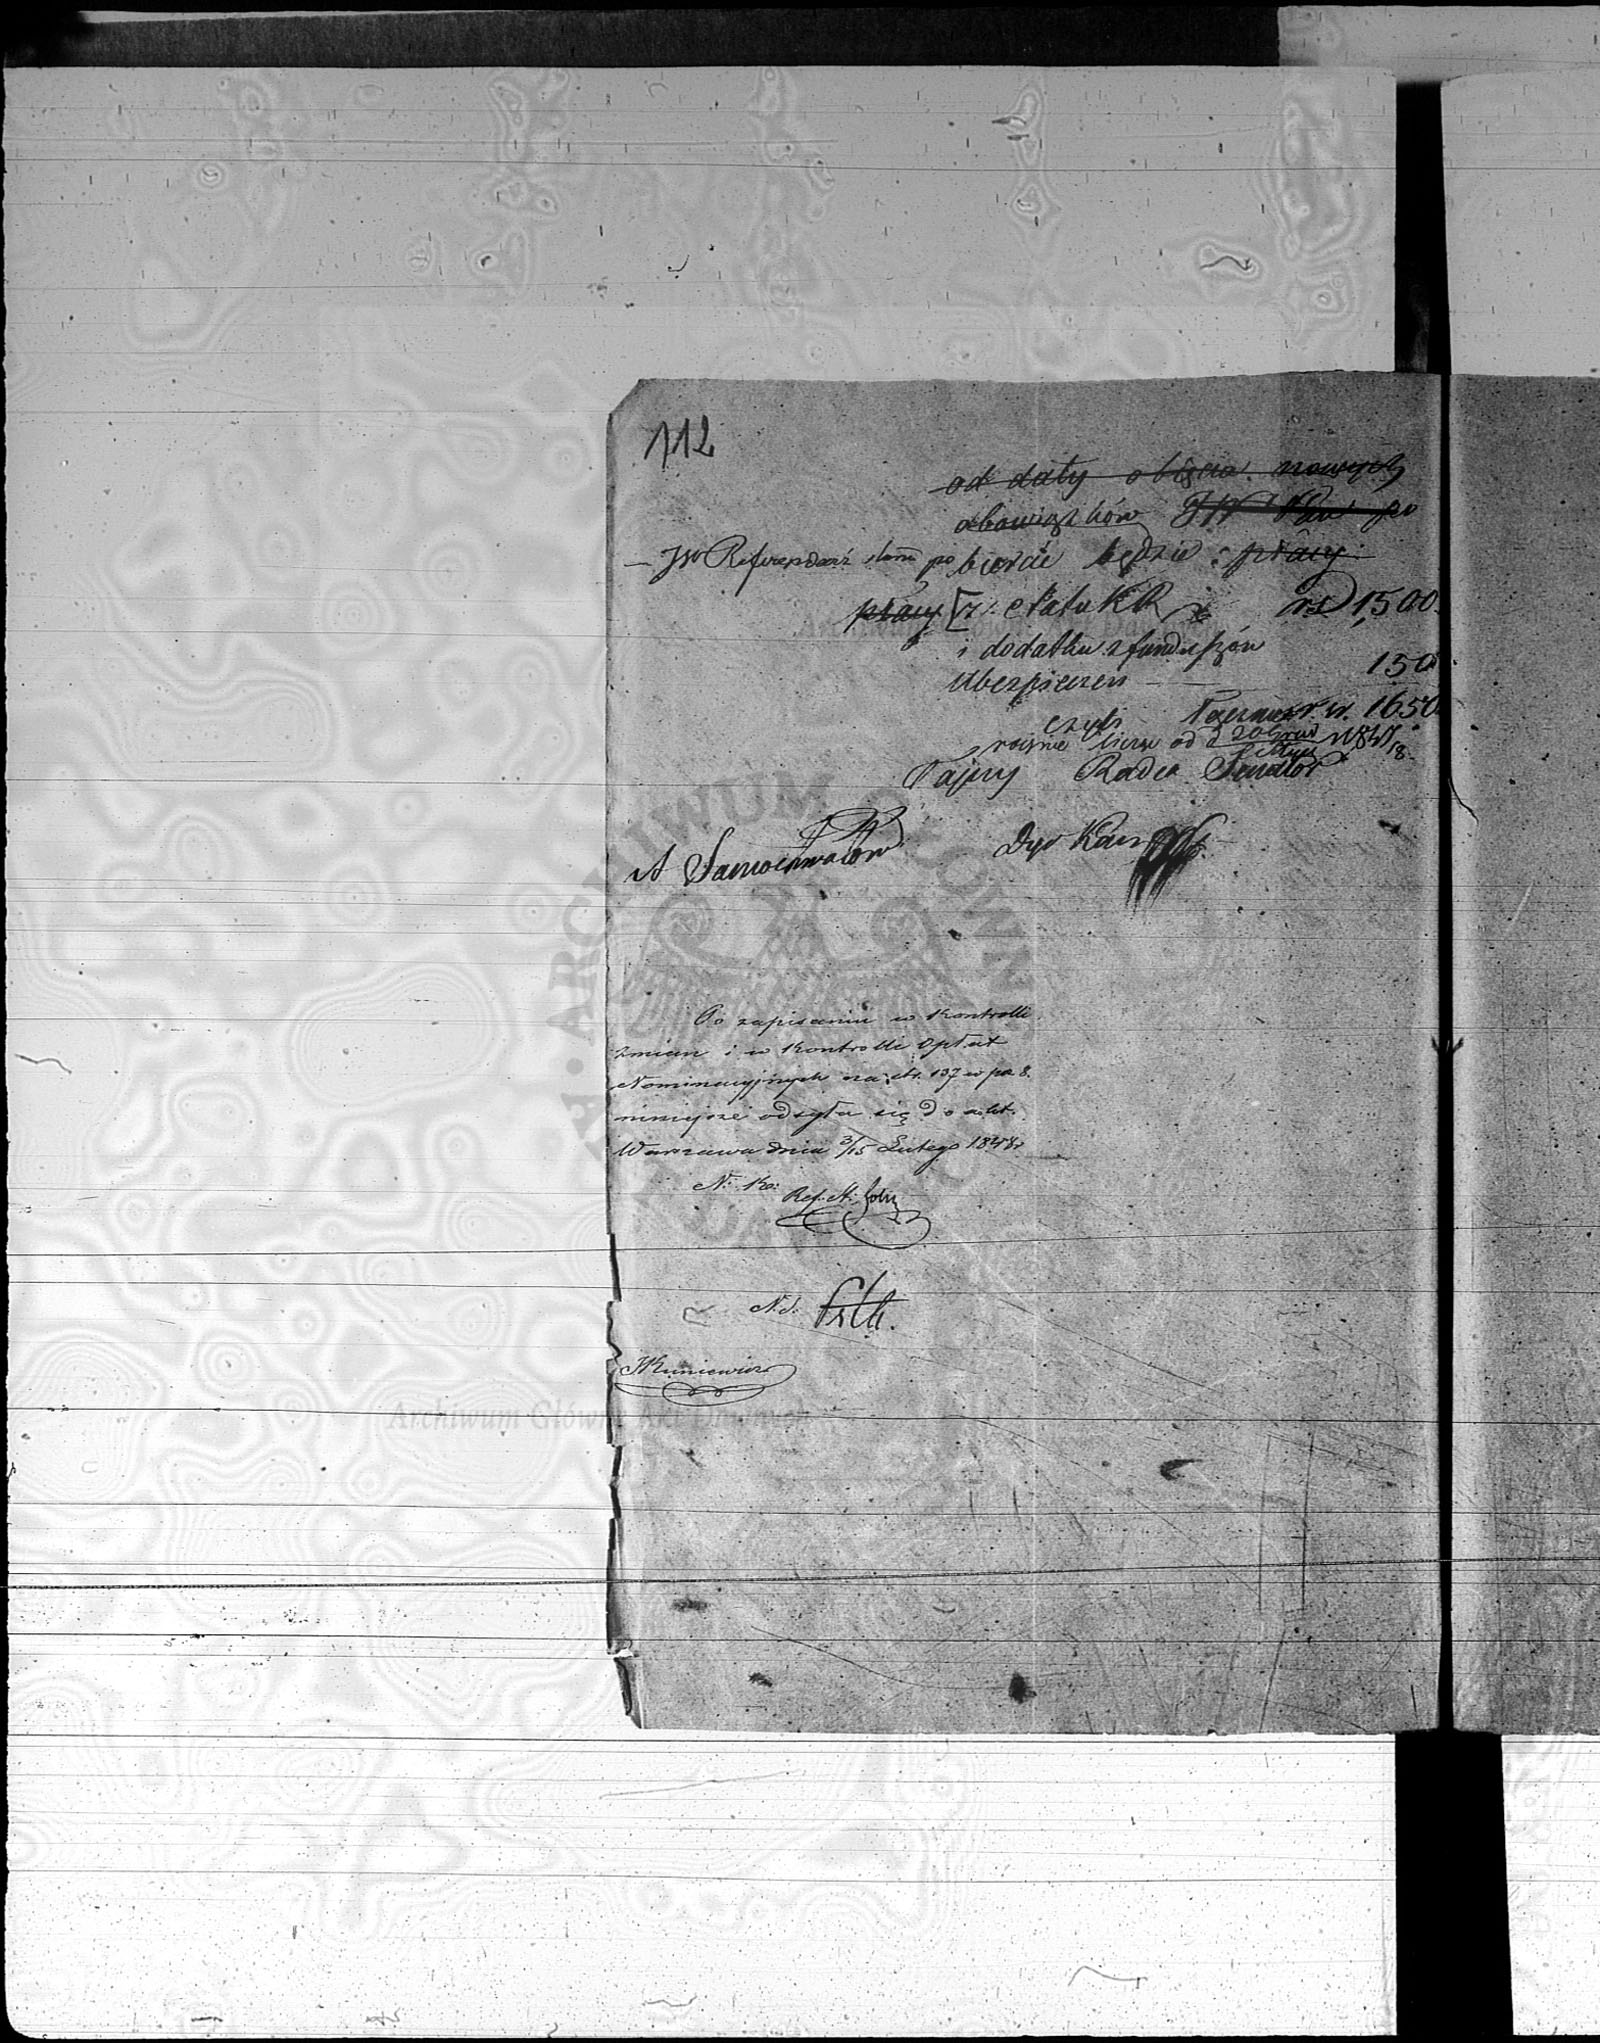 112
od daty objęcia nowych
obowiązków JW Pan po
— JW Referendarz Stanu pobierać będzie płacy
płacy z etatu KR rs 1,500.
i dodatku z funduszów
Ubezpieczeń — — 150
czyli razem r. sr. 1650
rocznie licząc od d 20 Grud 1847/8
Tajny Radca Senator
A Samochwałow Dyr Kan
Po zapisaniu w Kontrolli
zmian i w Kontrolli Opłat
Nominacyjnych na str. 137 w poz 8.
niniejsze odsyła się do akt.
Warszawa dnia 3/15 Lutego 1848 r
N. Ko: Ref. St.
N. S.
Archiwum Główne Akt Dawnych